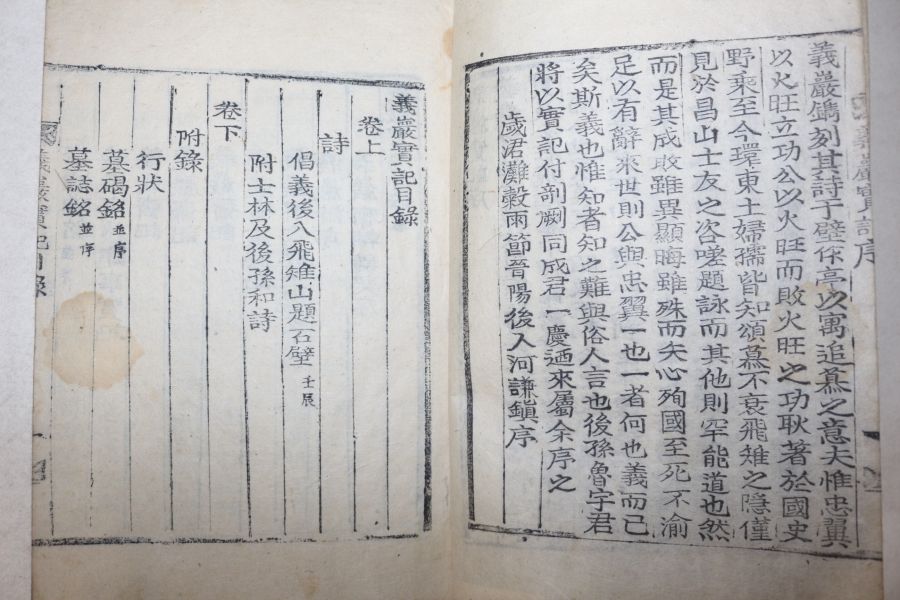 義巖鐫刻其詩于壁作亭以寓追慕之意夫惟忠翼
以火旺立功公以火旺而敗火旺之功耿著於國史
野乘至今環東土婦孺皆知頌慕不衰飛雉之隱僅
見於昌山士友之咨嗟題詠而其他則罕能道也然
而是其成敗雖異顯晦雖殊而夫心殉國至死不渝
足以有辭來世則公與忠翼一也一者何也義而已
矣斯義也惟知者知之難與俗人言也後孫魯宇君
將以實記付剞劂同成君一慶迺來屬余序之
歲涒灘穀雨節晉陽後人河謙鎭序
義巖實記目錄
卷上
詩
倡義後入飛雉山題石壁 壬辰
附士林及後孫和詩
卷下
附錄
行狀
墓碣銘 並序
墓誌銘 並序
義巖實記目錄